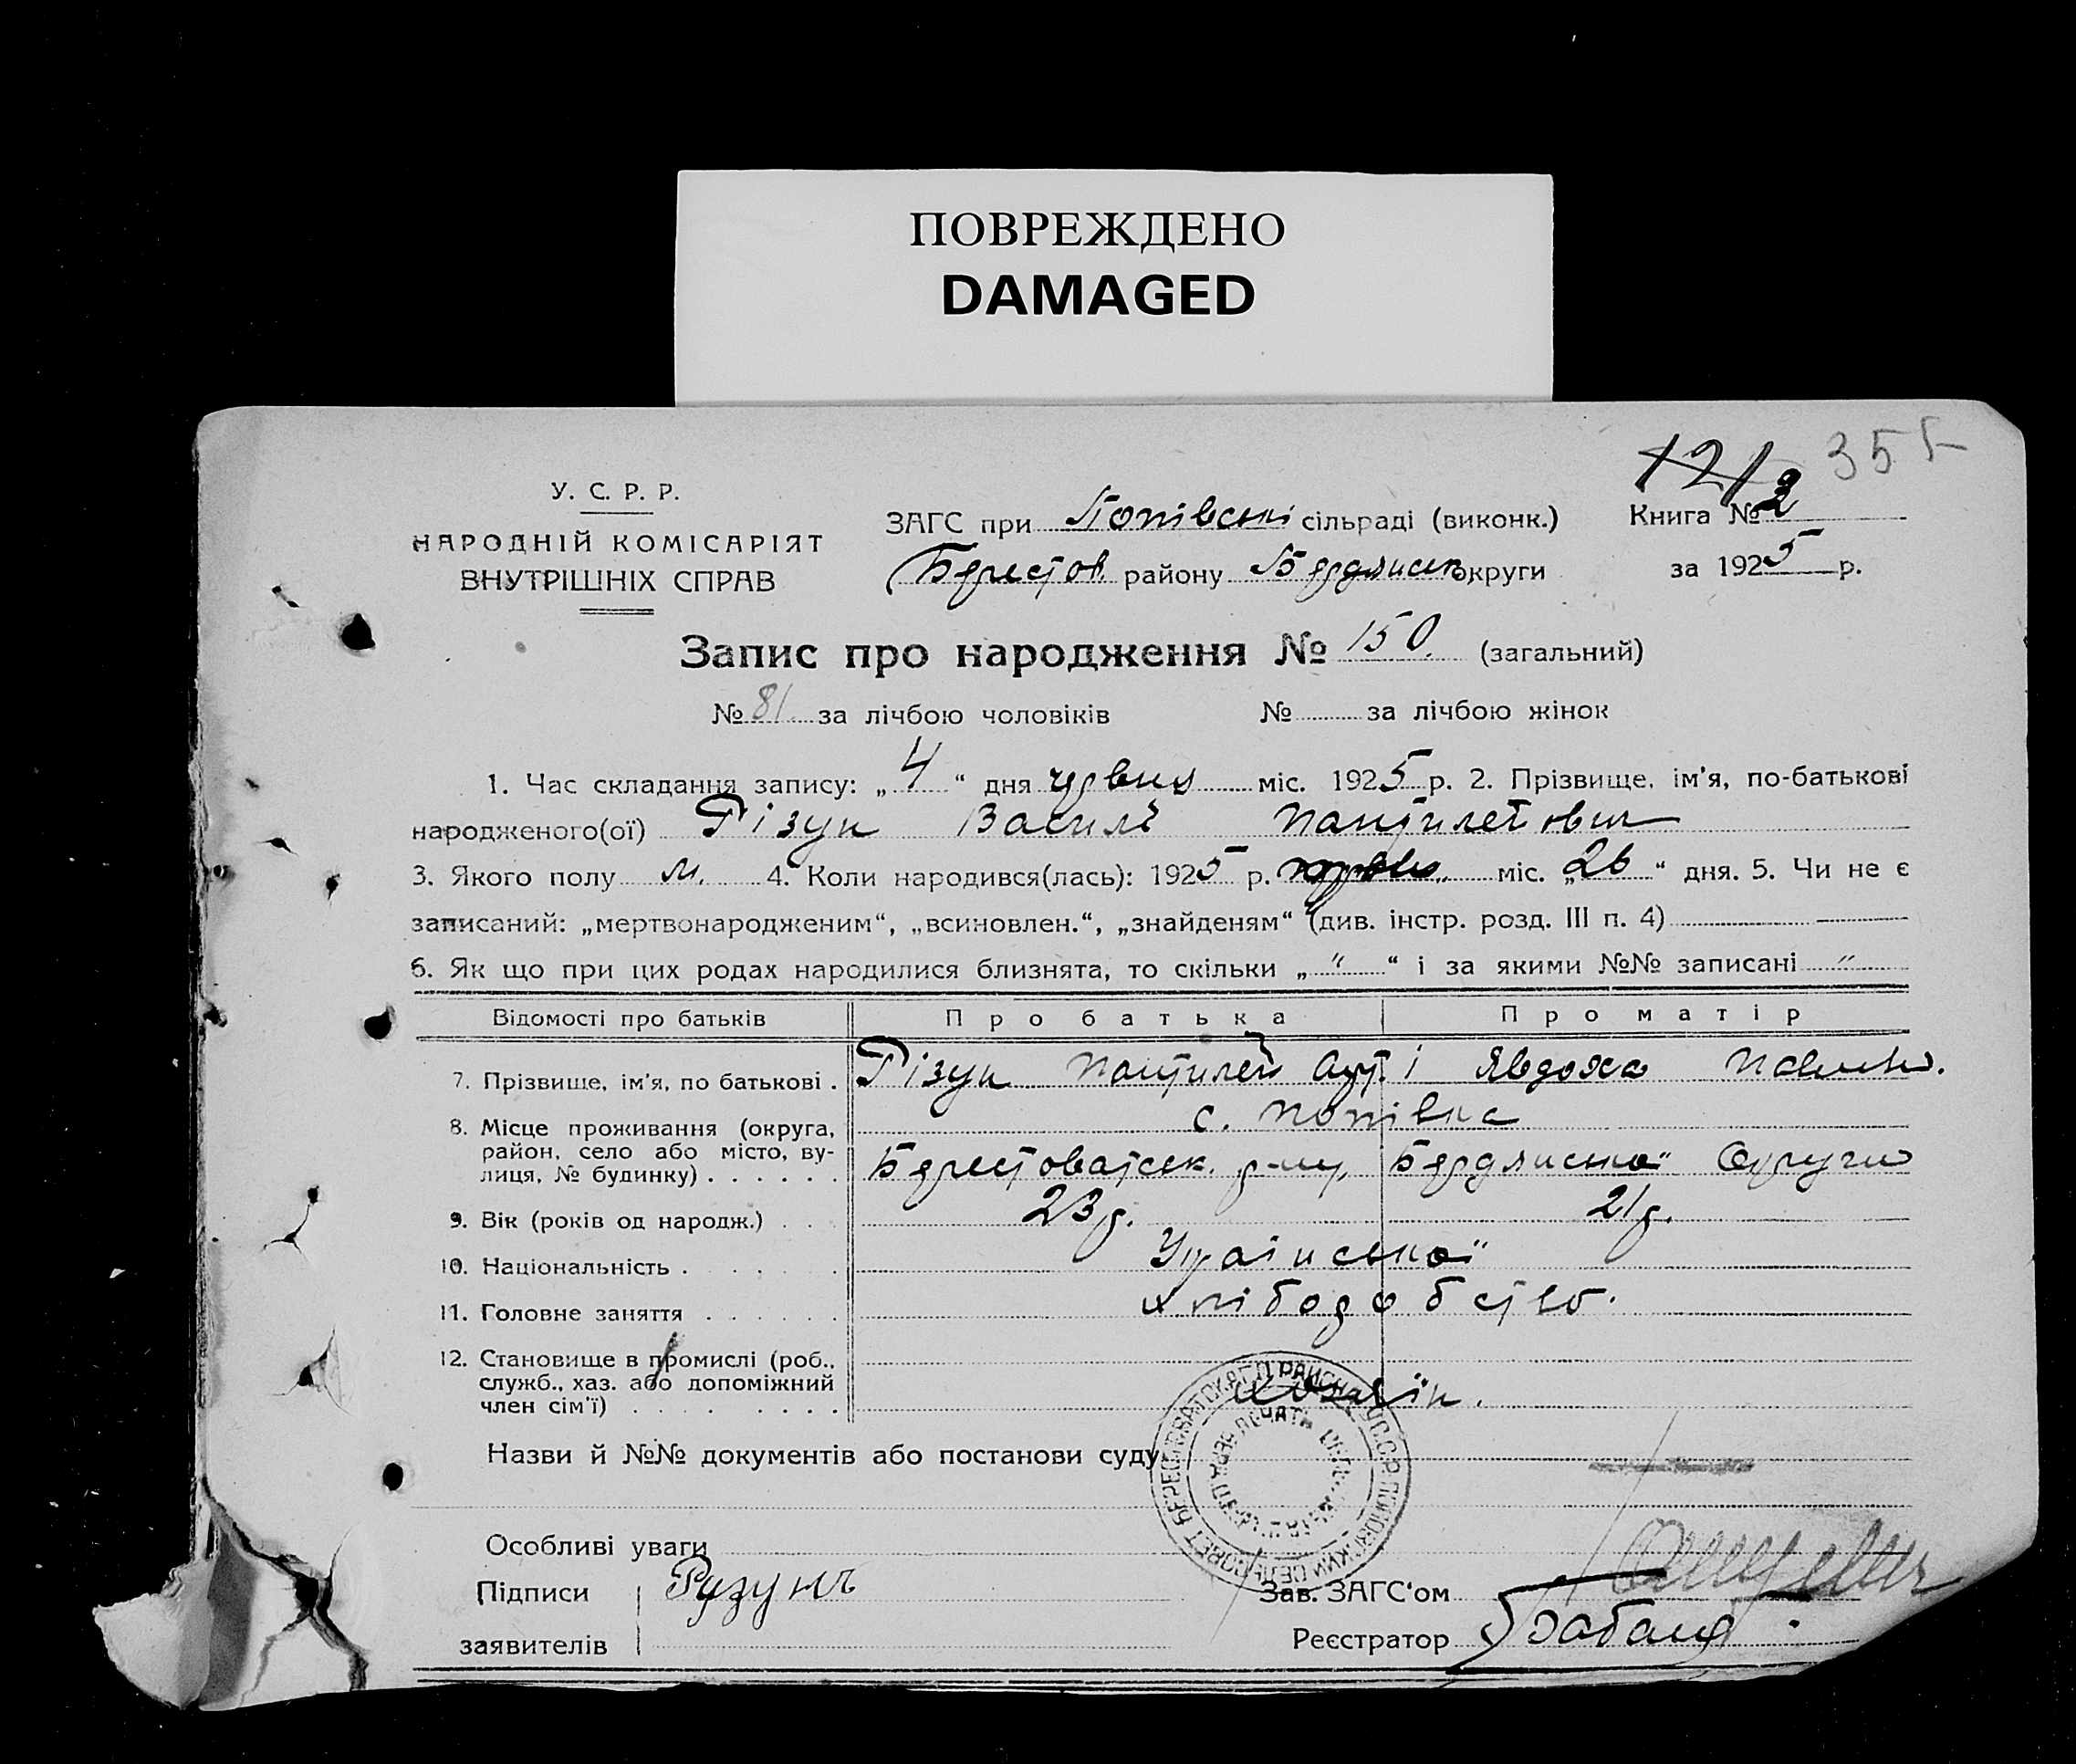 ПОВРЕЖДЕНО
DAMAGED
1213 355
У. С. Р. Р.
НАРОДНІЙ КОМІСАРІЯТ
ВНУТРІШНІХ СПРАВ
ЗАГС при Попівські сільраді (виконк.) Книга № 2
Берестов. району Бердянськ округи за 1925 р.
Запис про народження № 150. (загальний)
№ 81. за лічбою чоловіків № за лічбою жінок
1. Час складання запису: „4“ дня червня міс. 1925 р. 2. Прізвище, ім'я, по-батькові
народженого(ої) Різун Василь Пантилетович
3. Якого полу м. 4. Коли народився(лась): 1925 р. міс. „26“ дня. 5. Чи не є
записаний: „мертвонародженим“, „всиновлен.“, „знайденям“ (див. інстр. розд. III п. 4)
6. Як що при цих родах народилися близнята, то скільки „ " “ і за якими №№ записані "
Відомості про батьків Про батька Про матір
7. Прізвище, ім'я, по батькові . Різун Пантилей і Явдоха
8. Місце проживання (округа, с. Попівка
район, село або місто, ву-
лиця, № будинку) . . . . . . Берестоватськ. р-ну, Бердянської Округи
9. Вік (років од народж.) . . . 23 р. 21 р.
10. Національність . . . . . Української
11. Головне заняття . . . . . . хліборобство.
12. Становище в промислі (роб.,
служб., хаз. або допоміжний
член сім'ї) . . . . . . . . Хазяїн.
Назви й №№ документів або постанови суду
Особливі уваги
Підписи Рузунъ Зав. ЗАГС'ом
заявителів Реєстратор